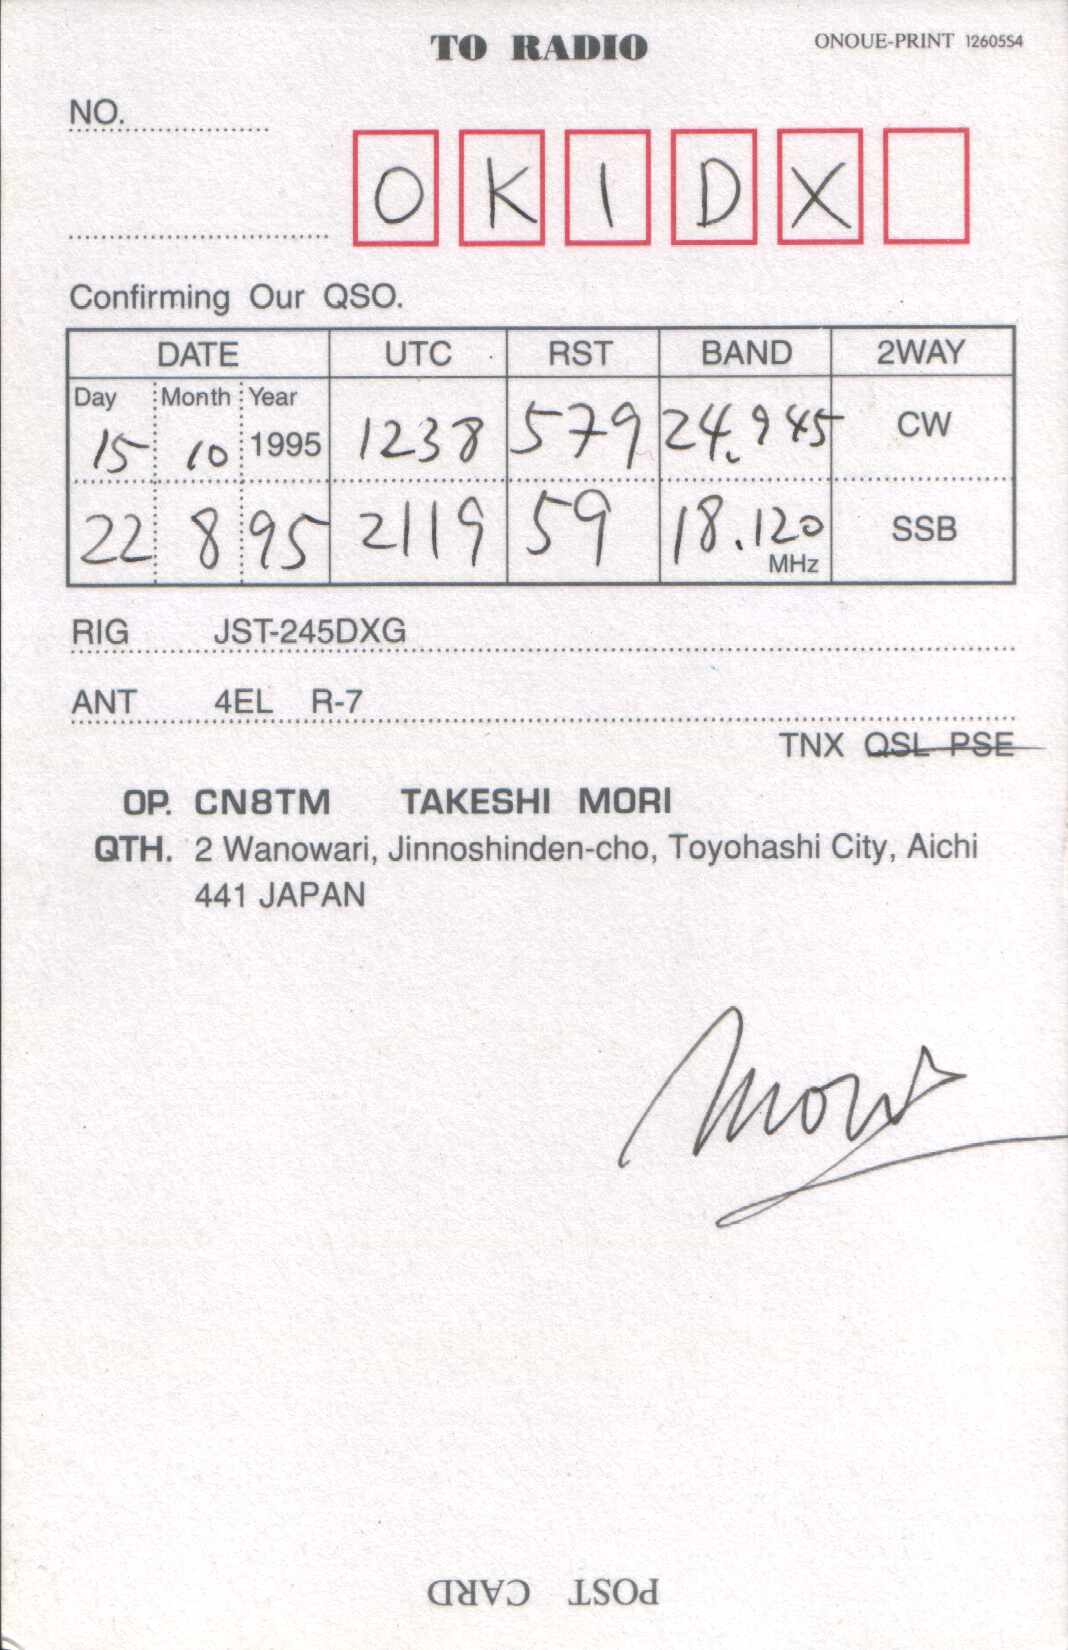 TO RADIO
ONOUE-PRINT 12605S4
NO.
OK1DX
Confirming Our QSO.
DATE UTC RST BAND 2WAY
Day Month Year
15 10 1995 1238 579 24.945 CW
22 8 95 2119 59 18.120 MHz SSB
RIG JST-245DXG
ANT 4EL R-7
TNX QSL PSE
OP. CN8TM TAKESHI MORI
QTH. 2 Wanowari, Jinnoshinden-cho, Toyohashi City, Aichi
441 JAPAN
Mori
POST CARD